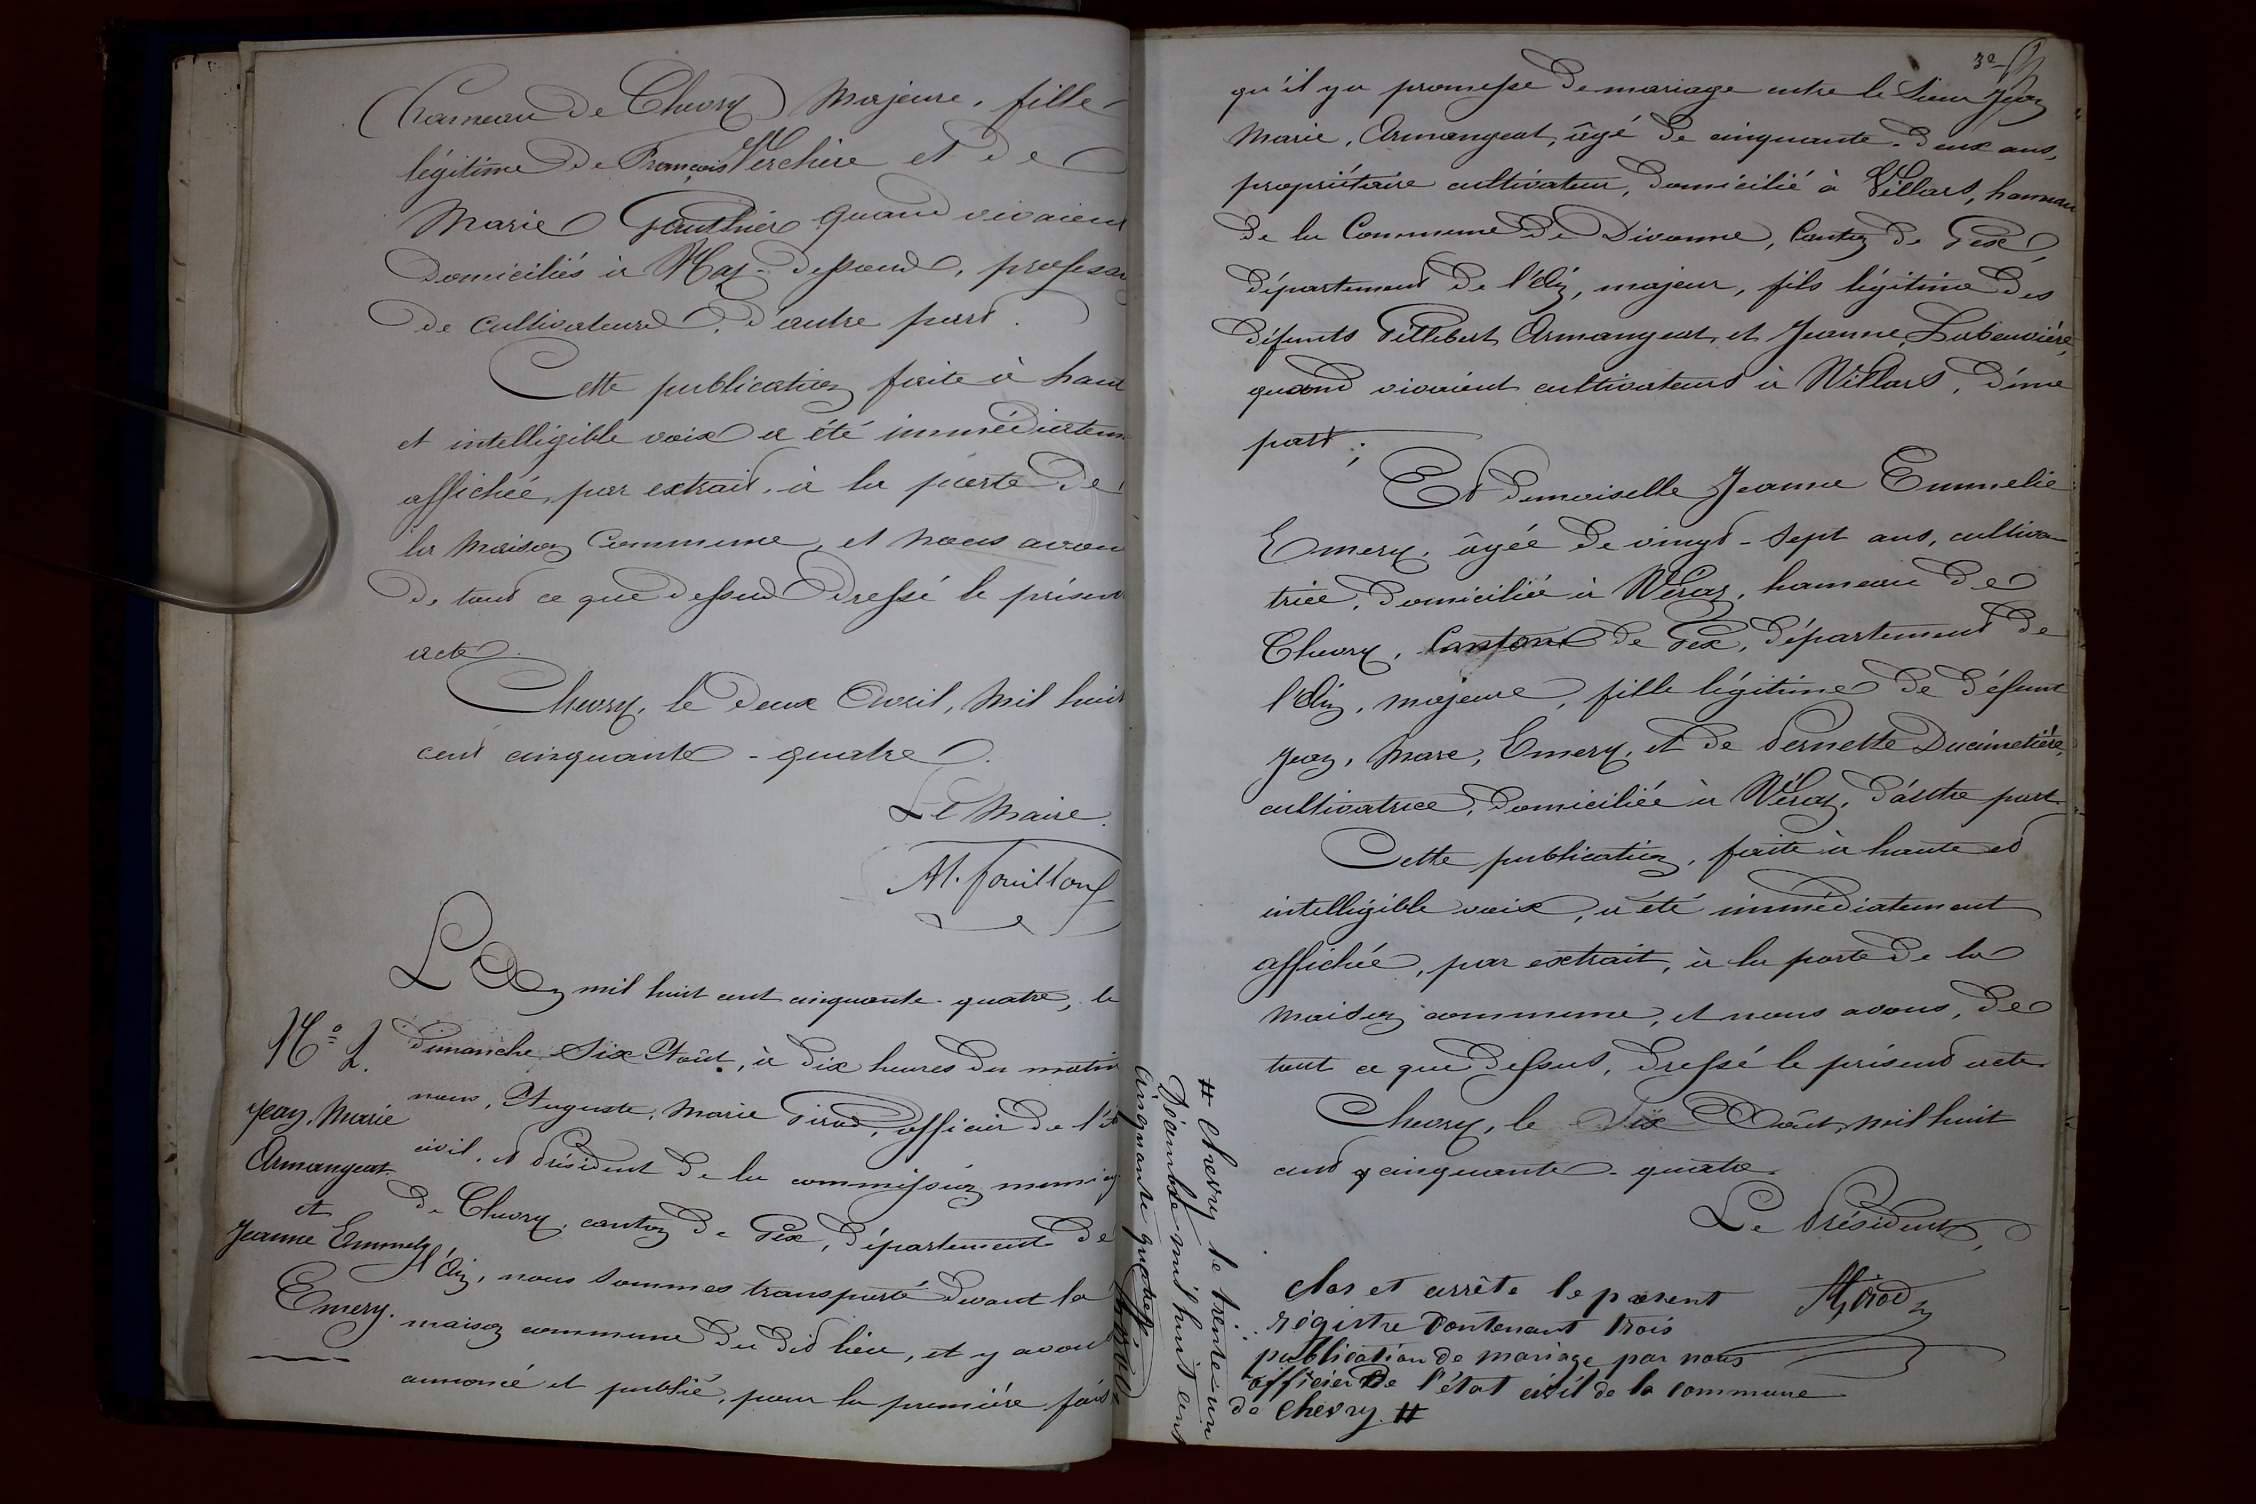 (hameau de Chevry) Majeure, fille
légitime de François Verchère et de
Marie Gauthier quand vivaient
Domiciliés à Naz-dessous, profession
de cultivateurs, d'autre part.
Cette publication faite à haut
et intelligible voix a été immédiatem
affichée, par extrait, à la porte de
la Maison Commune, et nous avons
de tout ce que dessus dressé le présent
acte.
Chevry, le deux Avril, Mil huit
cent cinquante-quatre.
Le Maire.
L'An mil huit cent cinquante-quatre, le
dimanche Six Août, à dix heures du matin
nous, Auguste, Marie Girod, officier de l'ét
civil, et Président de la commission municip
de Chevry, canton de Gex, département de
l'Ain, nous sommes transporté devant la
maison commune du dit lieu, et y avons
annoncé et publié, pour la première fois
N° 2.
Jean, Marie
Armangeat
et
Jeanne Emmely
Emery.
3e
qu'il y a promesse de mariage entre le Sieur Jean
Marie, Armangeat, âgé de cinquante-deux ans,
propriétaire cultivateur, domicilié à Villars, hameau
de la Commune de Divonne, Canton de Gex,
département de l'Ain, majeur, fils légitime des
défunts Gillebert Armangeat, et Jeanne, Labeuvière,
quand vivaient cultivateurs à Villars, d'une
part;
Et demoiselle Jeanne Emmelie
Emery, âgée de vingt-sept ans, cultiva-
trice, domiciliée à Véraz, hameau de
Chevry, Canton de Gex, département de
l'Ain, majeure, fille légitime de défunt
Jean, Marc, Emery, et de Pernette Ducimetière,
cultivatrice, domiciliée à Véraz, d'autre part.
Cette publication, faite à haute et
intelligible voix, a été immédiatement
affichée, par extrait, à la porte de la
maison commune, et nous avons, de
tout ce que dessus, dressé le présent acte.
Chevry, le Six Août, mil huit
cent cinquante-quatre.
Le Président,
AGirod
clos et arrêté le présent
régistre contenant trois
publication de mariage par nous
officier de l'état civil de la commune
de Chevry. #
# Chevry le trente-un
Décembre mil huit cent
cinquante quatre